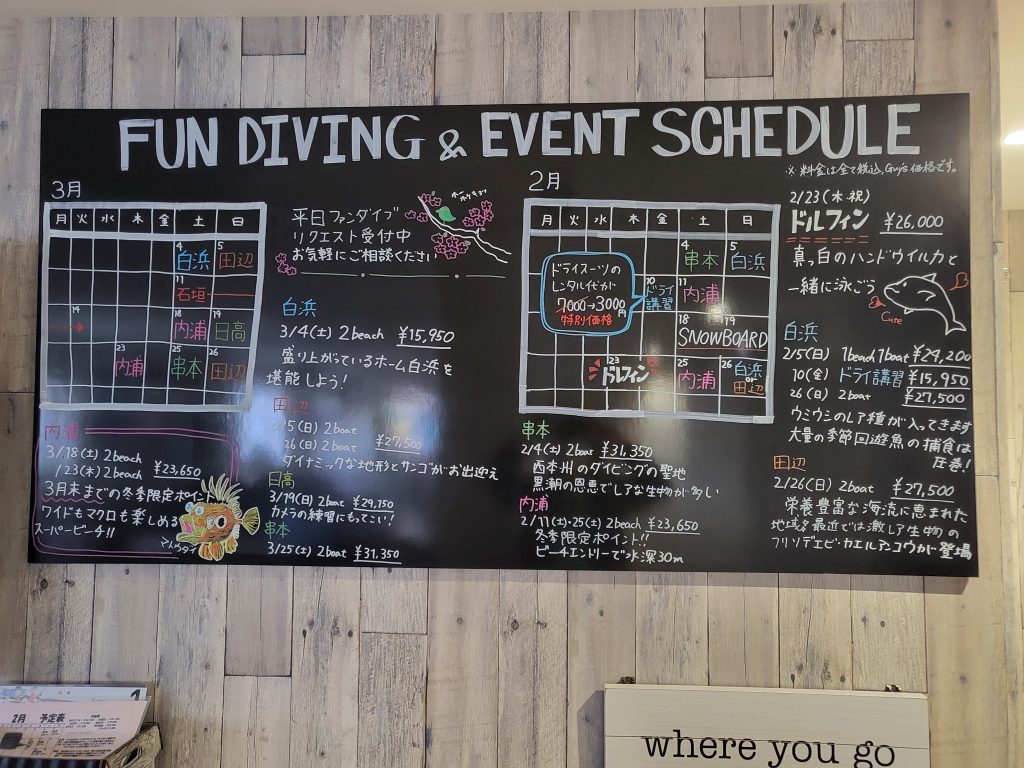 FUN DIVING & EVENT SCHEDULE
※ 料金は全て税込、Guy's 価格です。
3月
月 火 水 木 金 土 日
4 白浜 5 田辺
11 石垣
14
18 内浦 19 日高
23 内浦 25 串本 26 田辺
平日ファンダイブ
リクエスト受付中
お気軽にご相談ください
ホーホケキョ
白浜
3/4(土) 2beach ¥15,950
盛り上がっているホーム白浜を
堪能しよう!
田辺
3/5(日) 2boat
26(日) 2boat ¥27,500
ダイナミックな地形とサンゴがお出迎え
日高
3/19(日) 2boat ¥29,150
カメラの練習にもってこい!
串本
3/25(土) 2boat ¥31,350
内浦
3/18(土) 2beach
/23(木) 2beach ¥23,650
3月末までの冬季限定ポイント
ワイドもマクロも楽しめる
スーパービーチ!!
マトウダイ
2月
月 火 水 木 金 土 日
4 串本 5 白浜
ドライスーツの
レンタル代が
7000→3000円
特別価格
10 ドライ講習 11 内浦
18 19 SNOWBOARD
23 ドルフィン 25 内浦 26 白浜 or 田辺
串本
2/4(土) 2boat ¥31,350
西本州のダイビングの聖地
黒潮の恩恵でレアな生物が多い
内浦
2/11(土)・25(土) 2beach ¥23,650
冬季限定ポイント!!
ビーチエントリーで水深30m
2/23(木・祝)
ドルフィン ¥26,000
真っ白のハンドウイルカと
一緒に泳ごう
Cute
白浜
2/5(日) 1beach 1boat ¥24,200
10(金) ドライ講習 ¥15,950
26(日) 2boat ¥27,500
ウミウシのレア種が入ってきます
大量の季節回遊魚の捕食は
圧巻!
田辺
2/26(日) 2boat ¥27,500
栄養豊富な海流に恵まれた
地域♪最近では激レア生物の
フリソデエビ・カエルアンコウが登場
2月 予定表
where you go